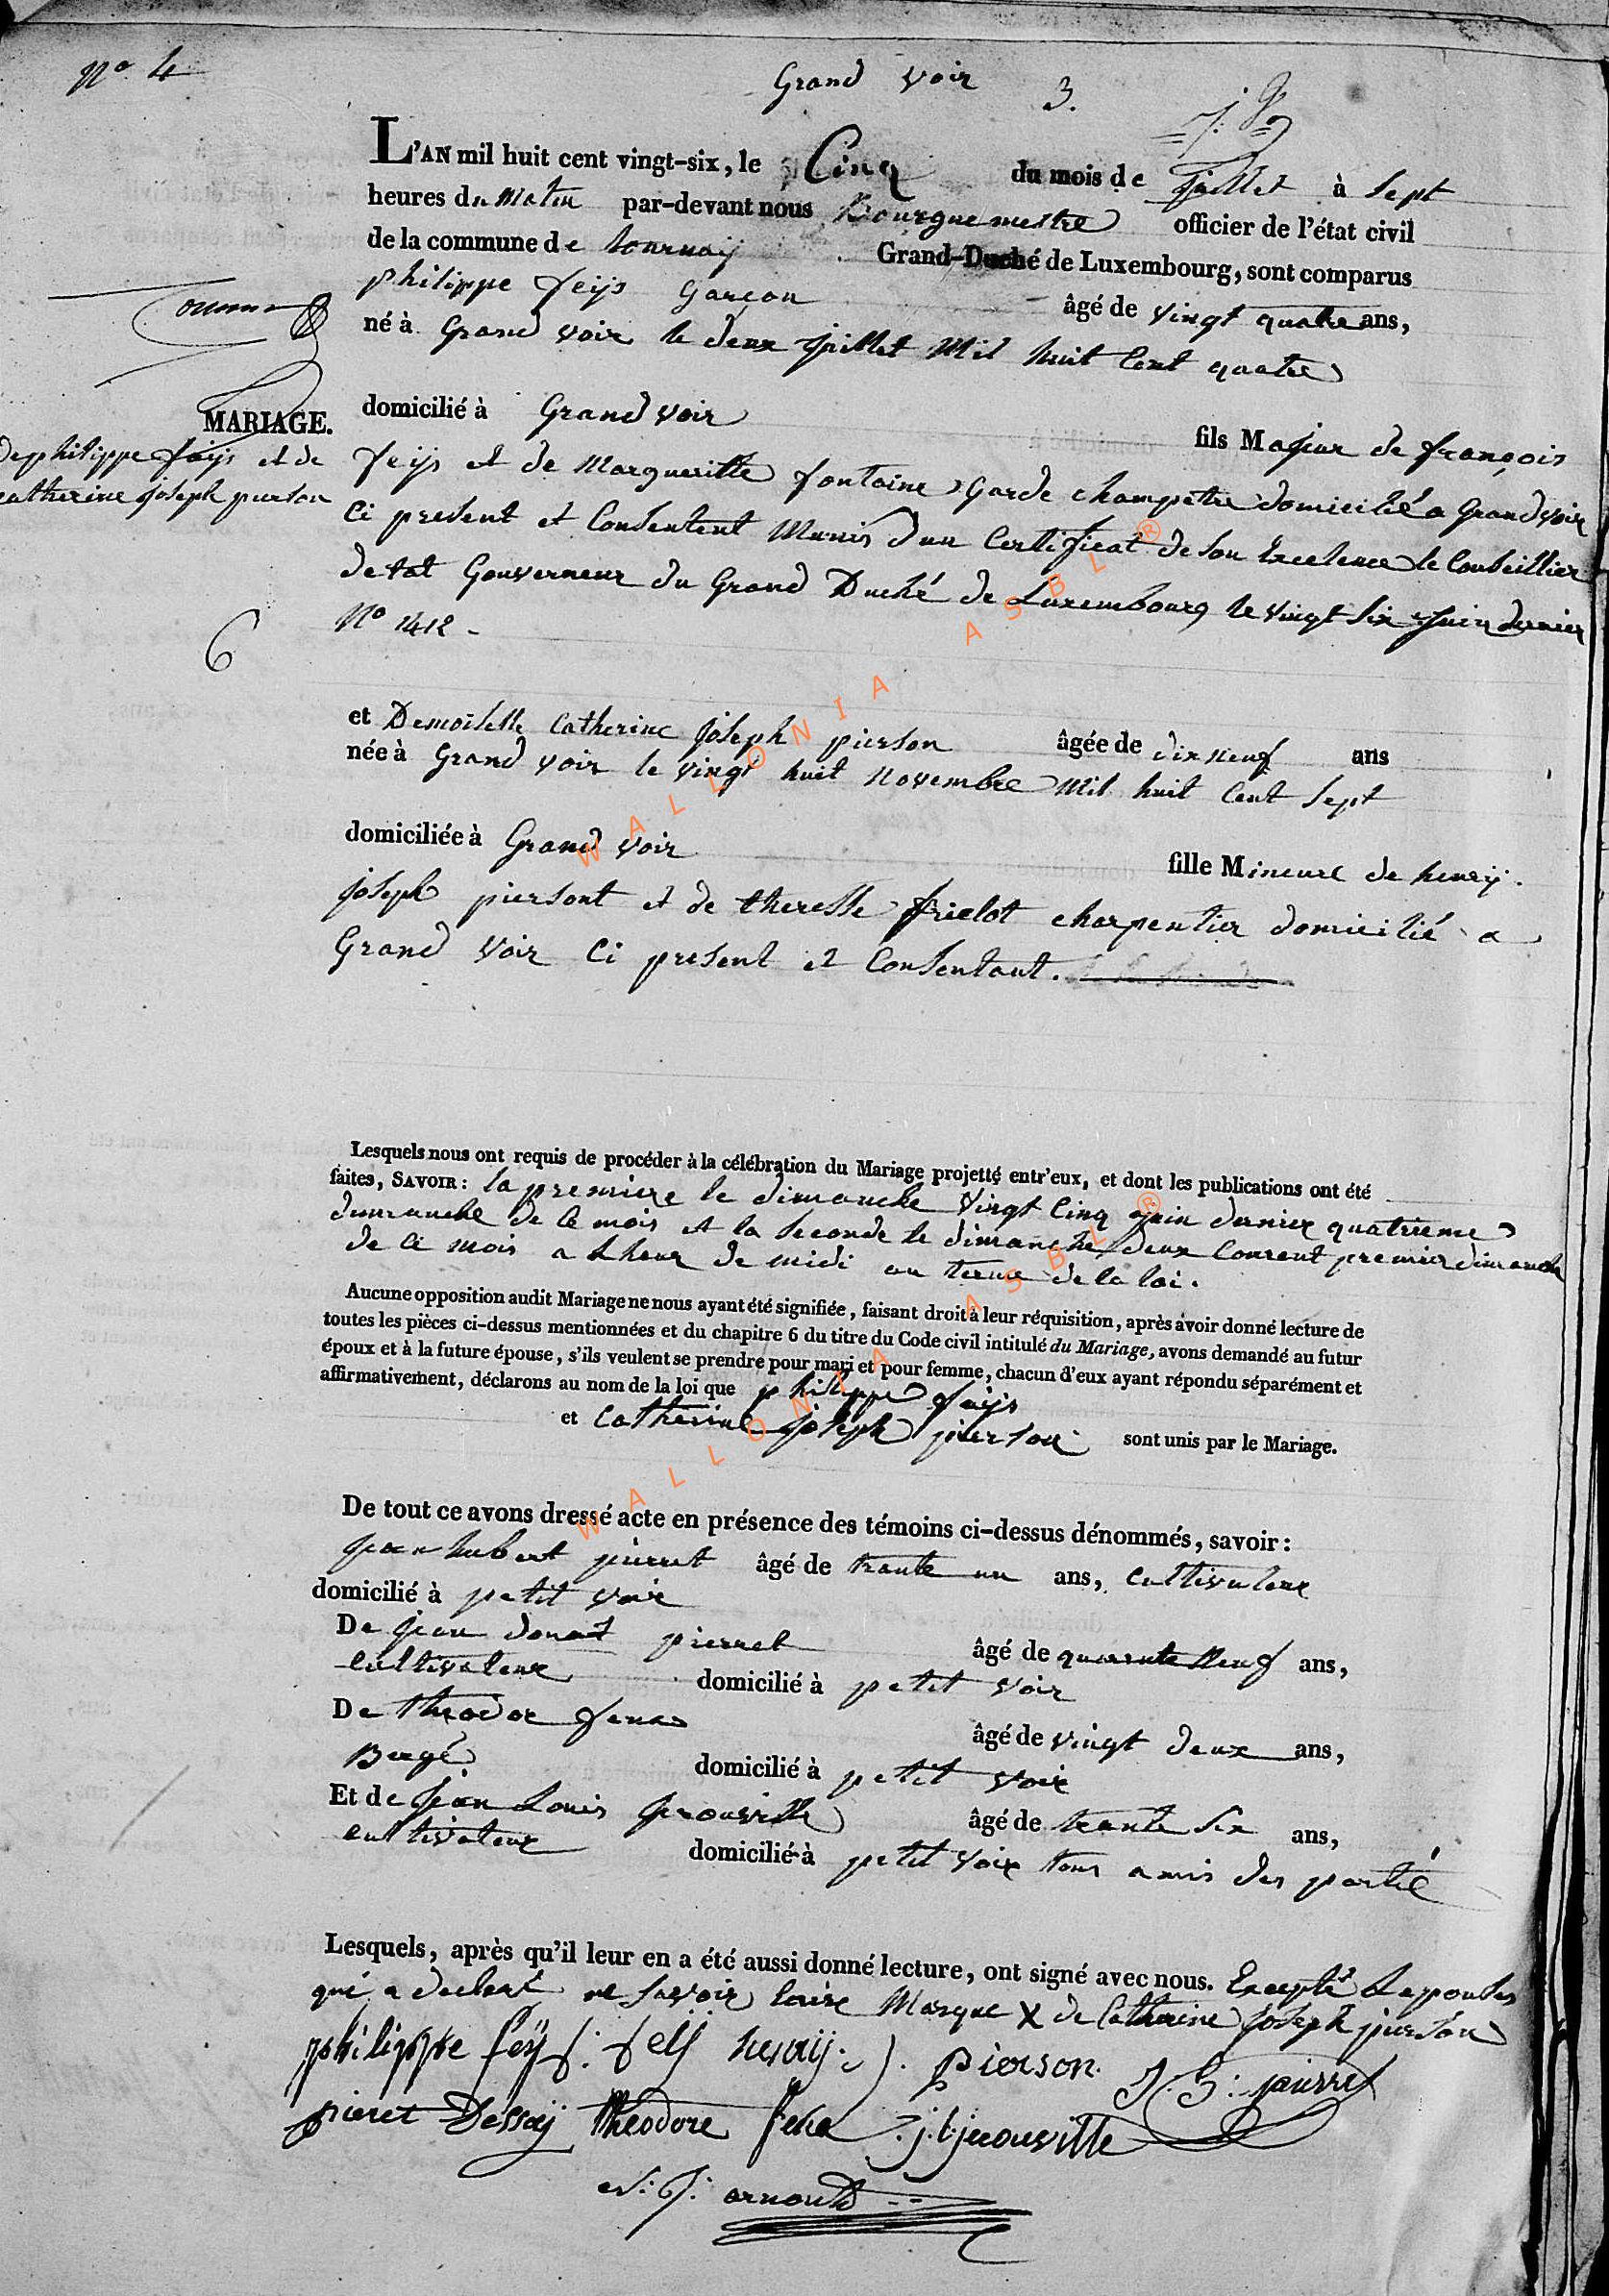 No 4
Grand voir
3.
L'AN mil huit cent vingt-six, le Cinq du mois de juillet à Sept
heures du Matin par-devant nous Bourguemestre officier de l'état civil
de la commune de tournaÿ Grand-Duché de Luxembourg, sont comparus
philippe feijs Garçon âgé de vingt quatre ans,
né à Grand voir le deux juillet Mil huit Cent quatre
domicilié à Grand voir fils Majeur de françois
feijs et de Margueritte fontaine Garde champetre domicilié a Grand voir
Ci present et Consentent Munis dun Certificat de Son Excelence le Conseillier
detat Gouverneur du Grand Duché de Luxembourg le vingt Six Juin dernier
No 1412 -
MARIAGE.
de philippe feijs et de
catherine joseph pierson
6
et Demoiselle Catherine joseph pierson âgée de dix neuf ans
née à Grand voir le vingt huit novembre Mil huit Cent Sept
domiciliée à Grand voir fille Mineure de henrÿ.
joseph piersont et de theresse frielot charpentier domicilié a
Grand voir Ci present et Consentant.
Lesquels nous ont requis de procéder à la célébration du Mariage projetté entr'eux, et dont les publications ont été
faites, SAVOIR: la premiere le dimanche vingt Cinq juin dernier quatrieme
dimanche de Ce mois et la Seconde le dimanche deux Courent premier dimanche
de Ci mois a Lheur de midi au terme de la loi.
Aucune opposition audit Mariage ne nous ayant été signifiée, faisant droit à leur réquisition, après avoir donné lecture de
toutes les pièces ci-dessus mentionnées et du chapitre 6 du titre du Code civil intitulé du Mariage, avons demandé au futur
époux et à la future épouse, s'ils veulent se prendre pour mari et pour femme, chacun d'eux ayant répondu séparément et
affirmativement, déclarons au nom de la loi que philippe feijs
et Catherine joseph pierson sont unis par le Mariage.
De tout ce avons dressé acte en présence des témoins ci-dessus dénommés, savoir:
jean hubert pierret âgé de trante un ans, Cultivateur
domicilié à petit voir
De jean donat pierret âgé de quarante Neuf ans,
Cultivateur domicilié à petit voir
De theodor fena âgé de vingt deux ans,
Bergé domicilié à petit voir
Et de jean Louis jerouville âgé de trante Six ans,
cultivateur domicilié à petit voir tous amis des partié
Lesquels, après qu'il leur en a été aussi donné lecture, ont signé avec nous. Excepté Lepouses
qui a declaré ne Savoir Ecrire Marque X de Catherine joseph pierson
philippe feÿs. f eÿ henrij. j. pierson. J. h: pierret
pieret Dessoij theodore fena j. l. jerouville
arnould
WALLONIA ASBL ®
WALLONIA ASBL ®